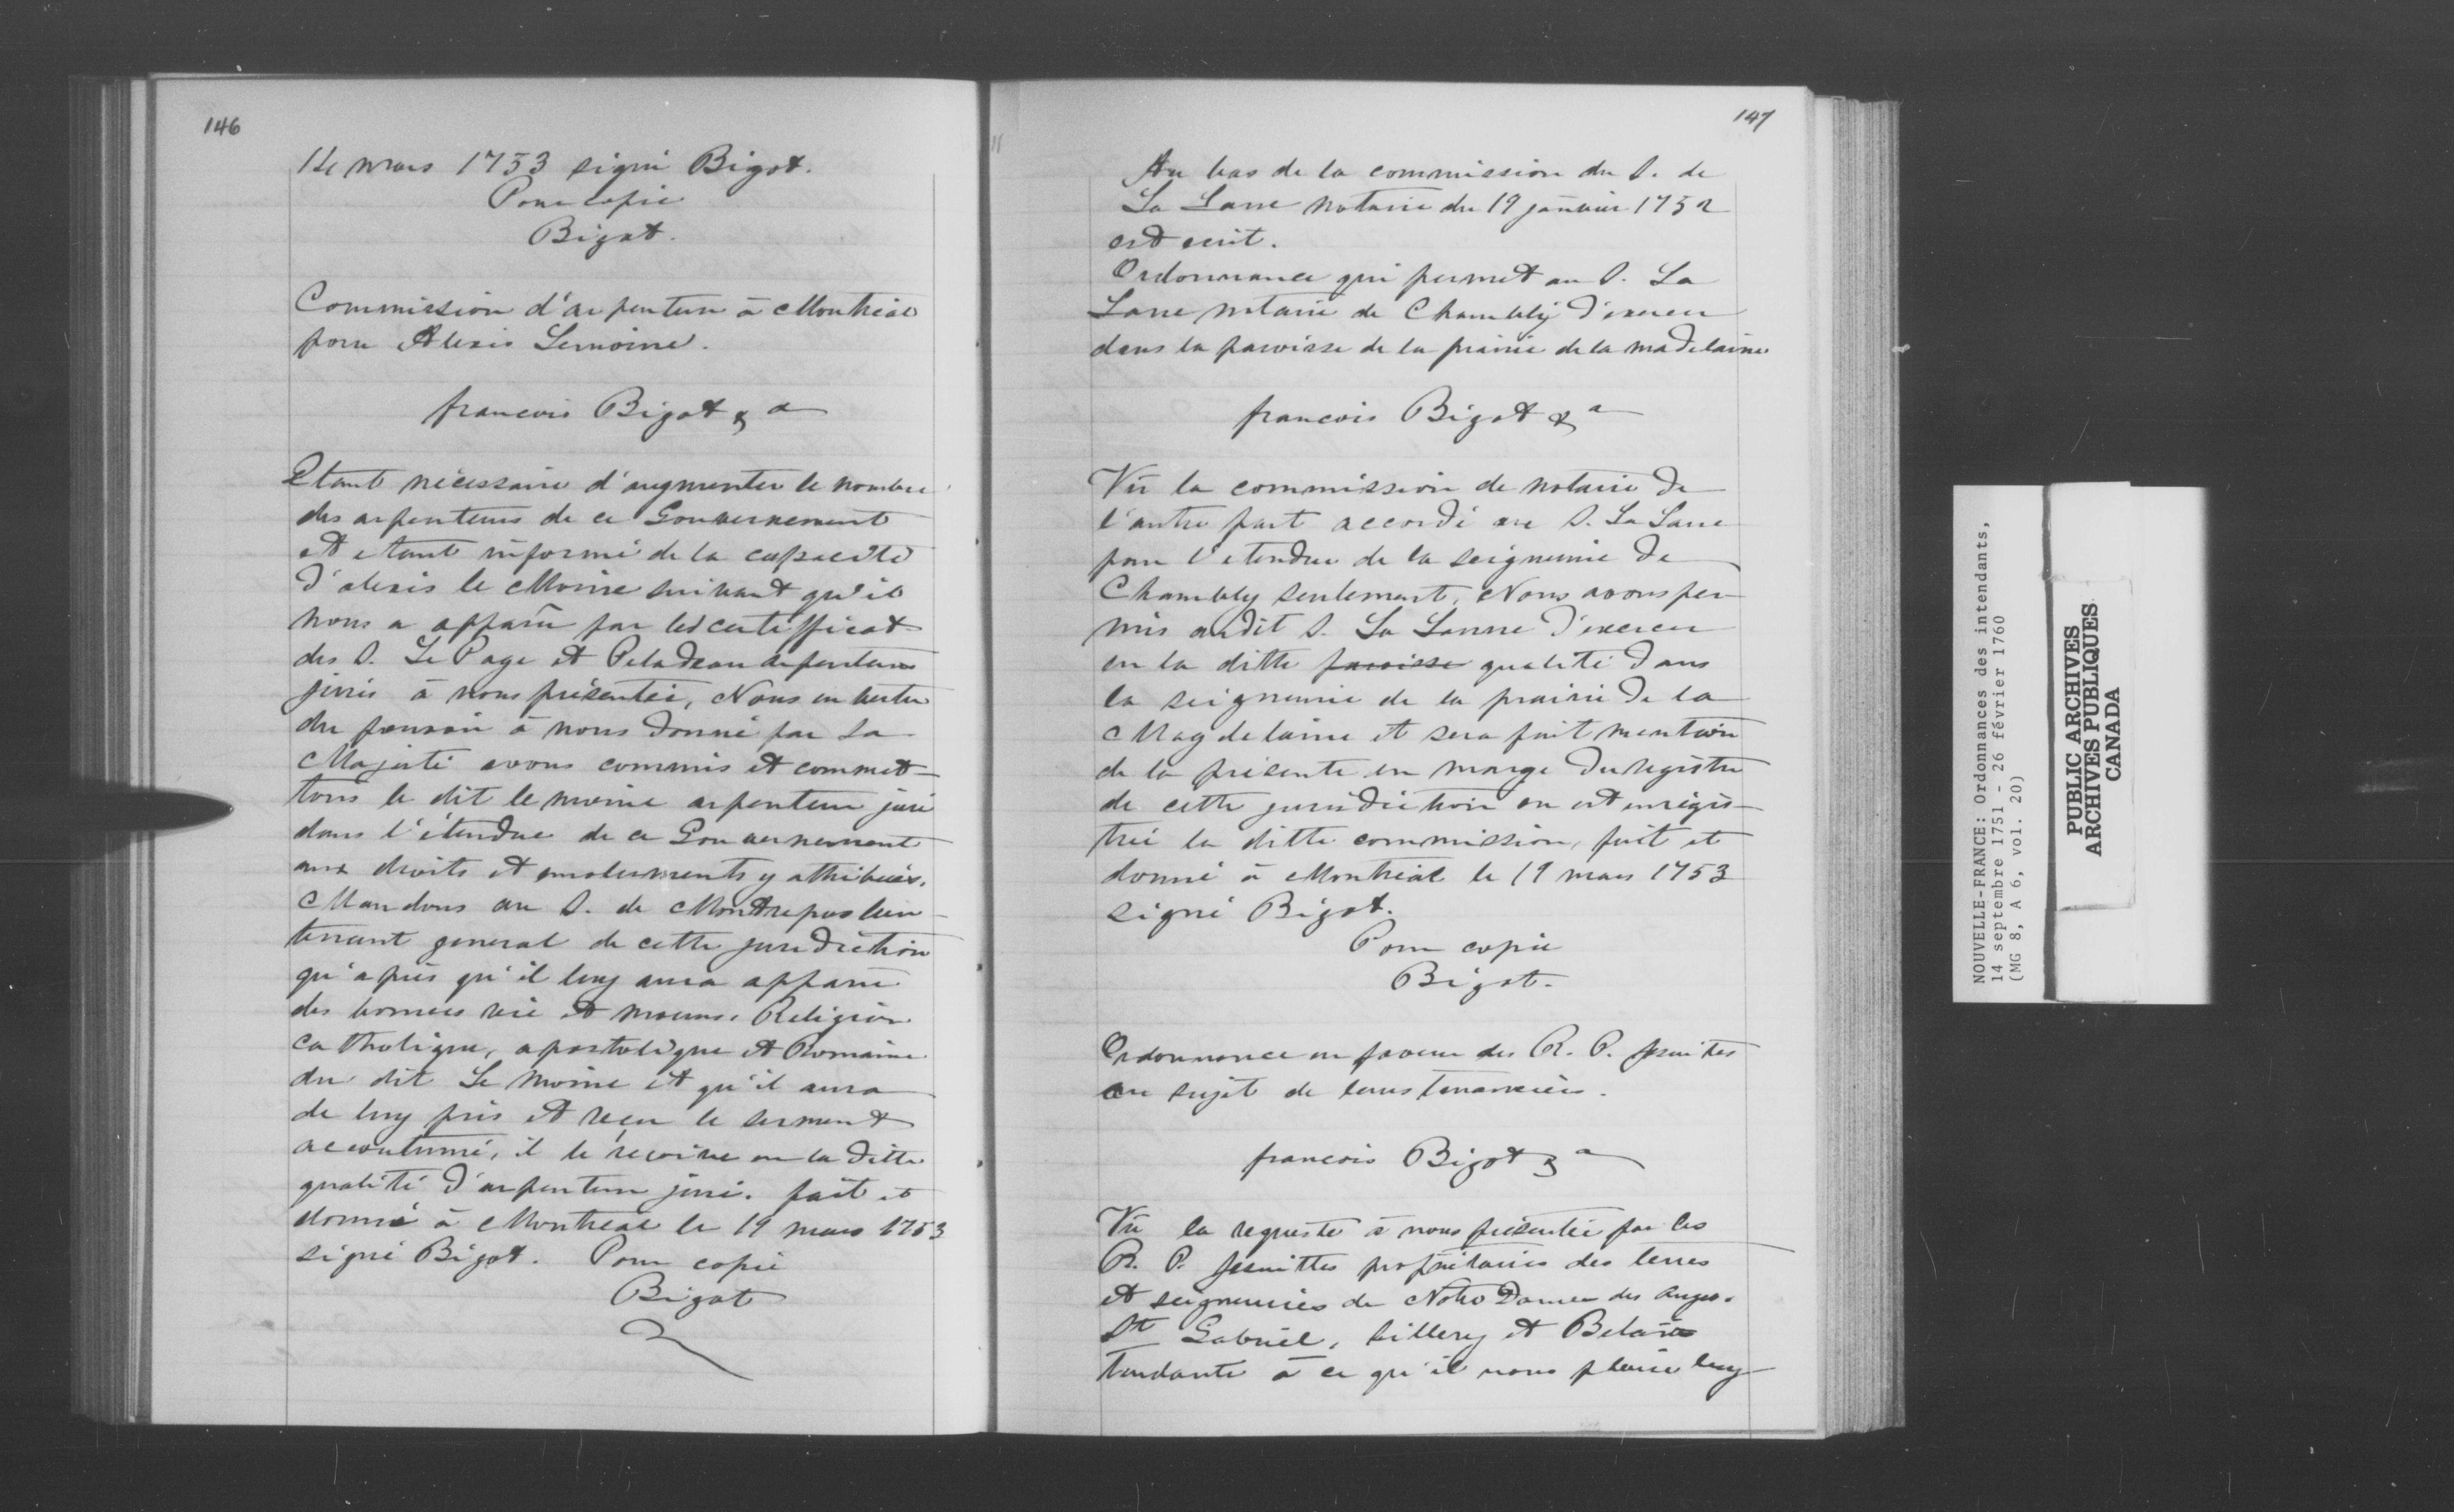 146
14 mars 1753 signé Bigot.
Pour copie
Bigot.
Commission d'arpenteur à Montréal
pour Alexis Lemoine.
francois Bigot &a
Etant nécessaire d'augmenter le nombre
des arpenteurs de ce Gouvernement
et etant informé de la capacité
d'alexis le Moine suivant qu'il
nous a apparu par les certifficat
des S. Le Page et Peladeau arpenteurs
jurés à nous présentée, Nous en vertu
du pouvoir à nous donné par Sa
Majesté avons commis et commet-
tons le dit le moine arpenteur juré
dans l'étendue de ce Gouvernement
aux droits et emoluments y attribués.
Mandons au S. de Montrepos lieu-
tenant general de cette jurediction
qu'après qu'il luy aura apparu
des bonnes vie et moeurs, Religion
catholique, apostolique et Romaine
du dit Le Moine et qu'il aura
de luy pris et reçu le serment
accoutumé, il le reçoive en la ditte
qualité d'arpenteur juré. fait et
donné à Montreal le 19 mars 1753
signé Bigot. Pour copie
Bigot
147
Au bas de la commission du S. de
La Lane notaire du 19 janvier 1752
est ecrit.
Ordonnance qui permet au S. La
Lane notaire de Chambly d'exercer
dans la paroisse de la prairie de la madelaine
francois Bigot &a
Vû la commission de notaire de
l'autre part accordé au S. La Lane
pour l'etendue de la seigneurie de
Chambly seulement, Nous avons per-
mis audit S. La Lanne d'exercer
en la ditte paroisse qualité dans
la seigneurie de la prairie de la
Magdelaine et sera fait mention
de la présente en marge du registre
de cette jurisdiction ou est enrégis-
trée la ditte commission, fait et
donné à Montréal le 19 mars 1753
signé Bigot.
Pour copie
Bigot.
Ordonnance en faveur des R. P. Jesuites
au sujet de leurs tenanciers.
francois Bigot &a
Vû la requeste à nous présentée par les
R. P. Jesuittes propriétaires des terres
et seigneuries de Notre Dame des anges.
St Gabriel, Sillery et Belair
tendante à ce qu'il nous plaise luy
NOUVELLE-FRANCE: Ordonnances des intendants,
14 septembre 1751 - 26 février 1760
(MG 8, A 6, vol. 20)
PUBLIC ARCHIVES
ARCHIVES PUBLIQUES
CANADA